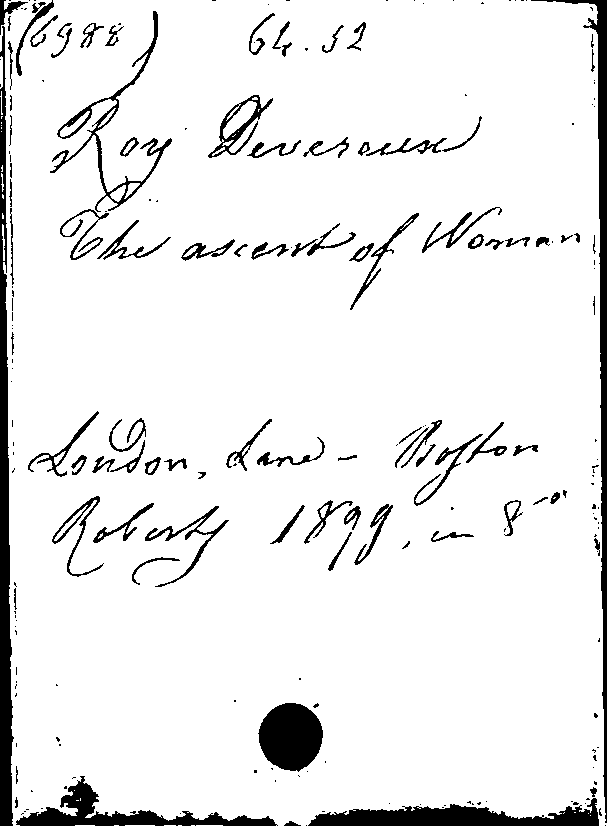 (6988) 64.52
Roy Devereux
The ascent of Woman
London, Lane - Boston
Roberts 1899, in 8-o